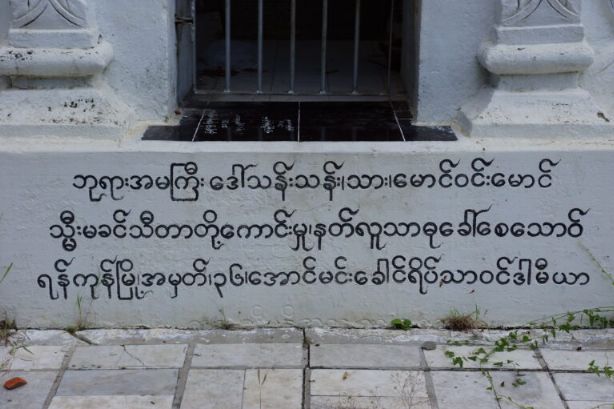 ဘုရားအမကြီး ဒေါ်သန်းသန်း၊သား၊မောင်ဝင်းမောင်
သ္မီးမခင်သီတာတို့ကောင်းမှု၊နတ်လူသာဓုခေါ်စေသောဝ်
ရန်ကုန်မြို့၊အမှတ်၊၃၆၊အောင်မင်းခေါင်ရိပ်သာဝင်ဒါမီယာ